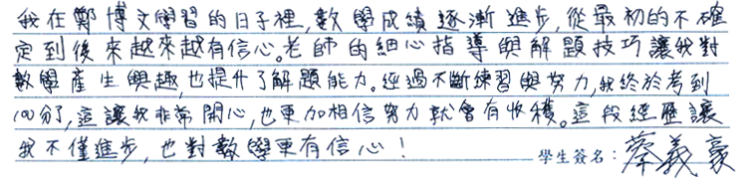 我在鄭博文學習的日子裡,數學成績逐漸進步,從最初的不確
定到後來越來越有信心。老師的細心指導與解題技巧讓我對
數學產生興趣,也提升了解題能力。經過不斷練習與努力,我終於考到
100分了,這讓我非常開心,也更加相信努力就會有收穫。這段經歷讓
我不僅進步,也對數學更有信心!
學生簽名:蔡義豪